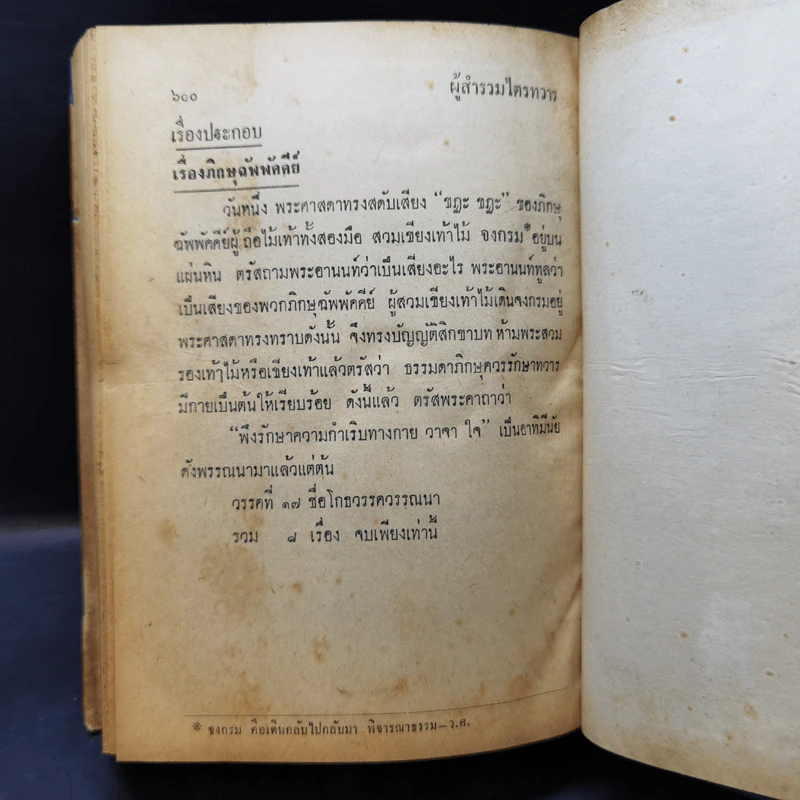 ๖๐๐ ผู้สำรวมไตรทวาร
เรื่องประกอบ
เรื่องภิกษุฉัพพัคคีย์
วันหนึ่ง พระศาสดาทรงสดับเสียง “ขฏะ ขฏะ” ของภิกษุ
ฉัพพัคคีย์ผู้ถือไม้เท้าทั้งสองมือ สวมเขียงเท้าไม้ จงกรม*อยู่บน
แผ่นหิน ตรัสถามพระอานนท์ว่าเป็นเสียงอะไร พระอานนท์ทูลว่า
เป็นเสียงของพวกภิกษุฉัพพัคคีย์ ผู้สวมเขียงเท้าไม้เดินจงกรมอยู่
พระศาสดาทรงทราบดังนั้น จึงทรงบัญญัติสิกขาบท ห้ามพระสวม
รองเท้าไม้หรือเขียงเท้าแล้วตรัสว่า ธรรมดาภิกษุควรรักษาทวาร
มีกายเป็นต้นให้เรียบร้อย ดังนี้แล้ว ตรัสพระคาถาว่า
“พึงรักษาความกำเริบทางกาย วาจา ใจ” เป็นอาทิมีนัย
ดังพรรณนามาแล้วแต่ต้น
วรรคที่ ๑๗ ชื่อโกธวรรควรรณนา
รวม ๘ เรื่อง จบเพียงเท่านี้
* จงกรม คือเดินกลับไปกลับมา พิจารณาธรรม—ว.ศ.